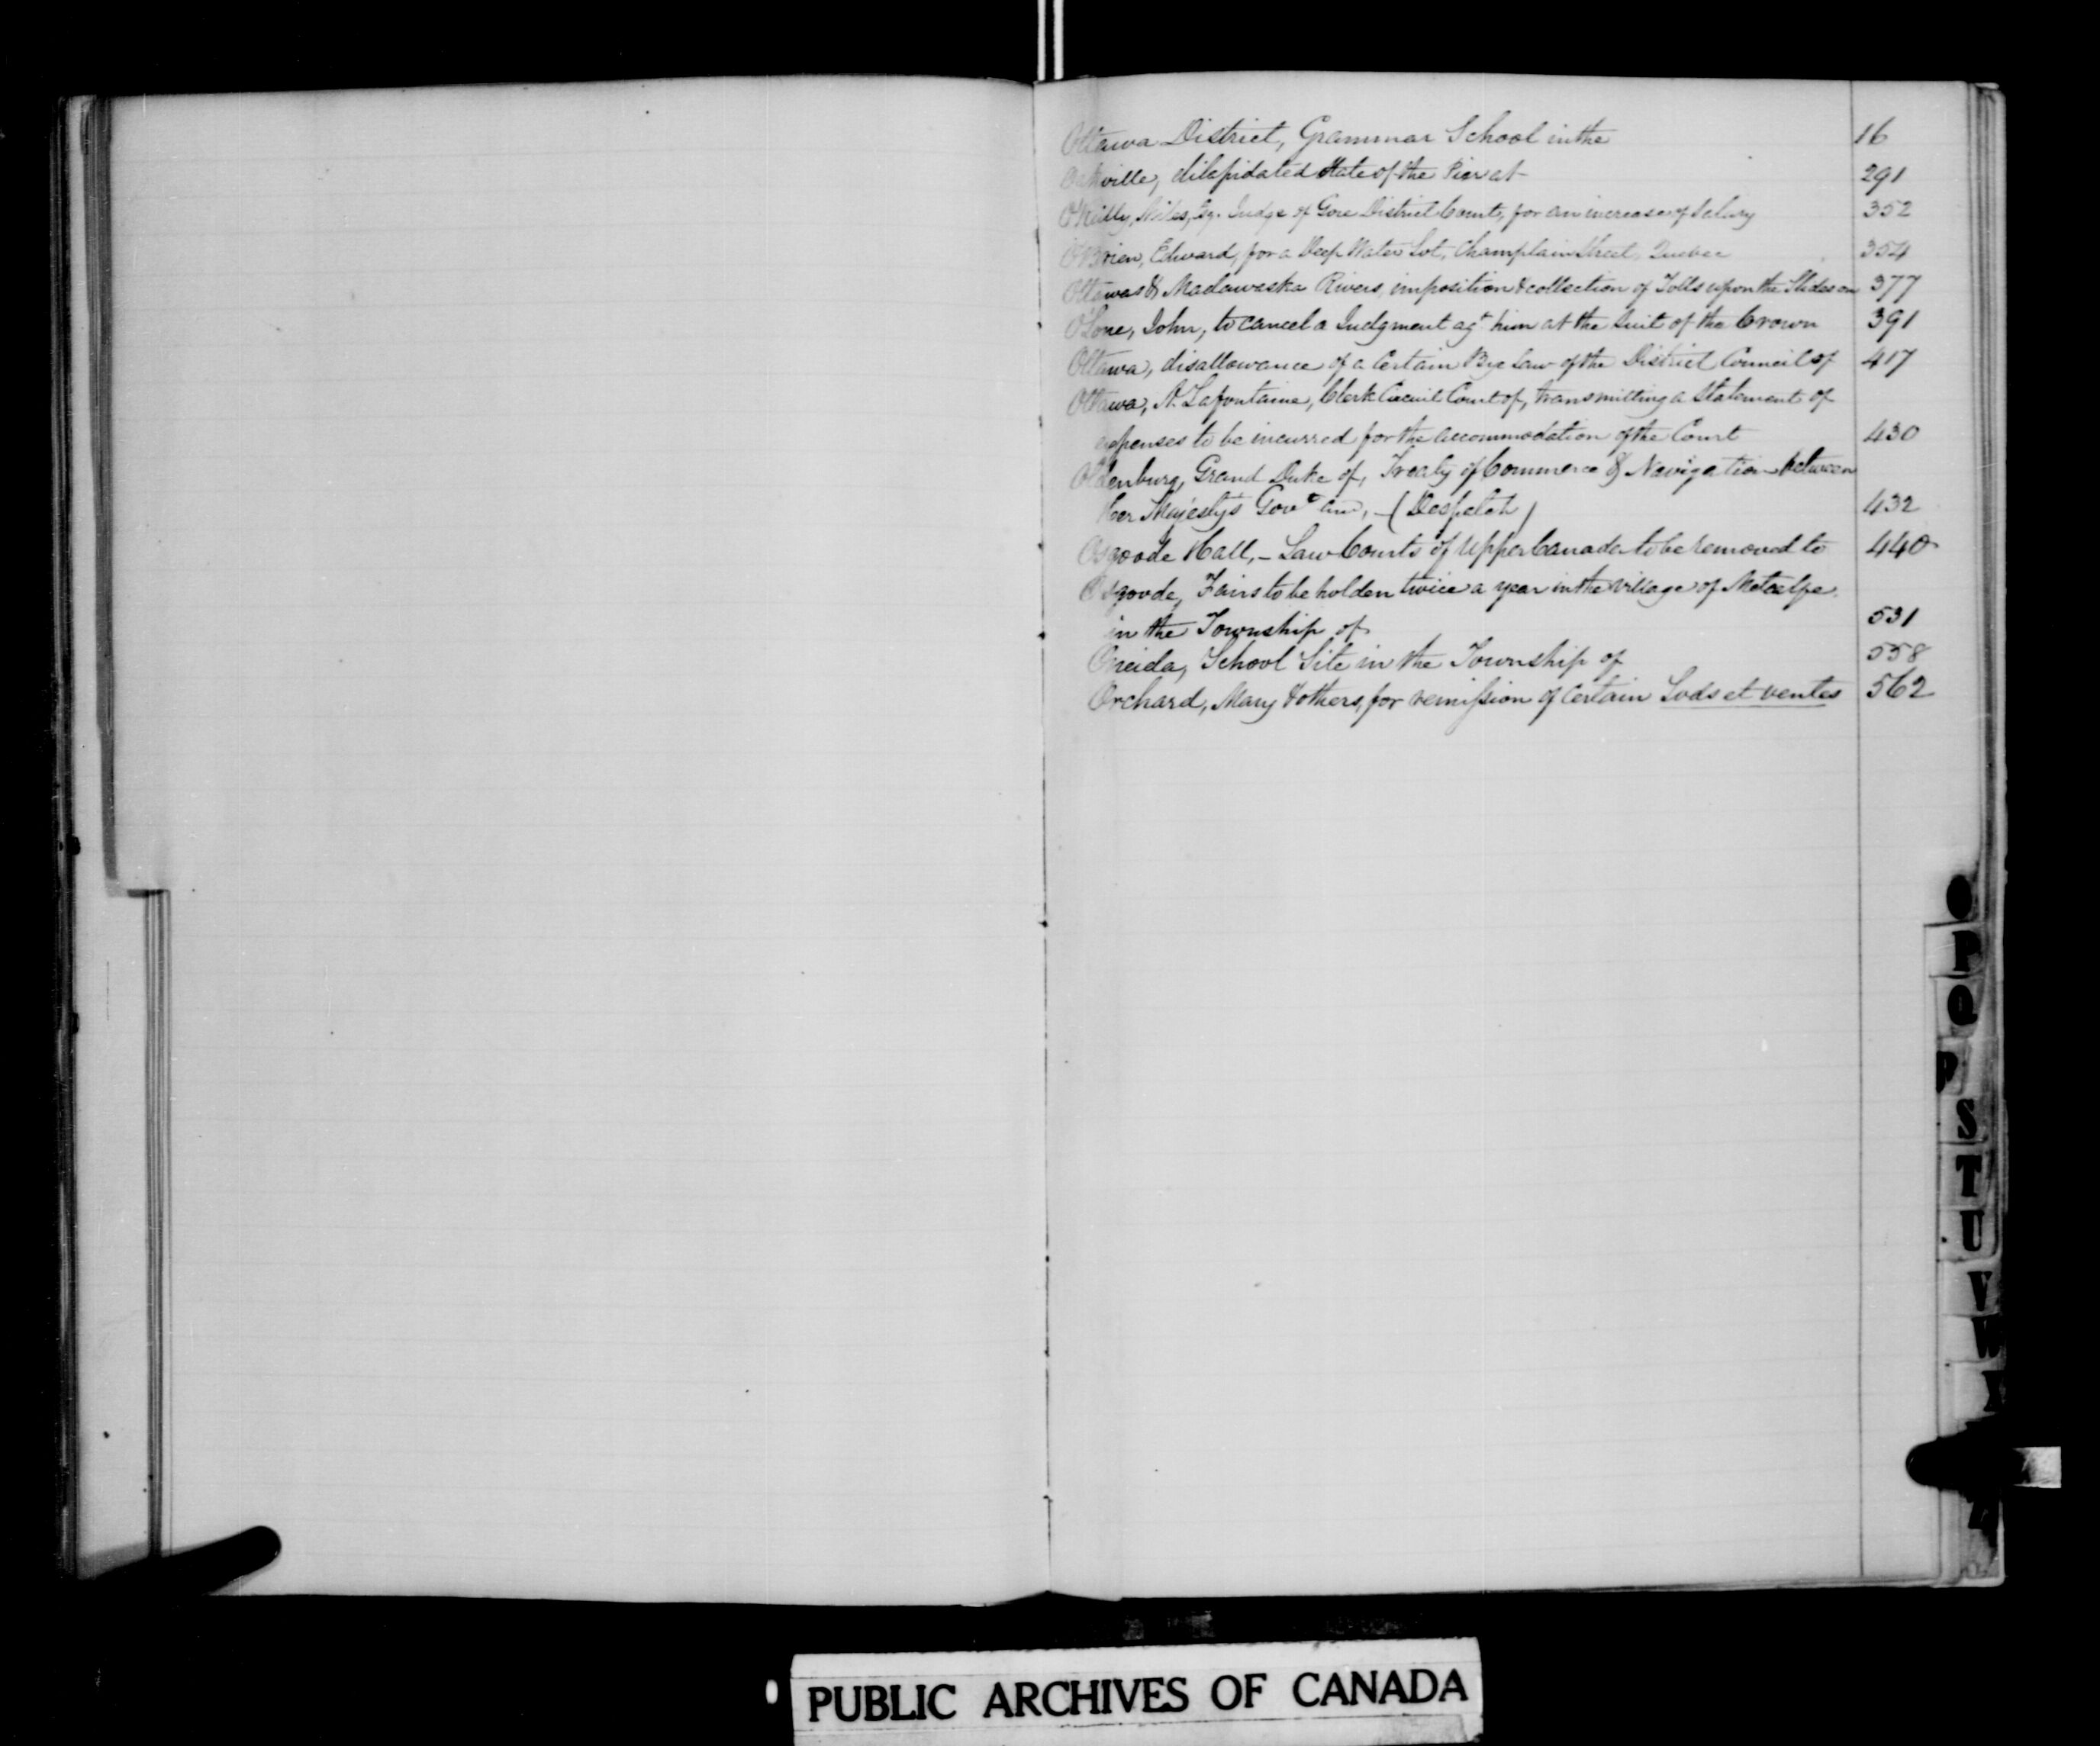 Ottawa District, Grammar School in the 16
Oakville, dilapidated State of the Pier at 291
O'Reilly, Miles, Esq. Judge of Gore District Court, for an increase of Salary 352
O'Brien, Edward, for a Deep Water Lot, Champlain Street, Quebec 354
Ottawa & Madawaska Rivers, imposition & collection of Tolls upon the Slides on 377
O'Lone, John, to cancel a Judgment agt him at the Suit of the Crown 391
Ottawa, disallowance of a Certain Bye Law of the District Council of 417
Ottawa, N. Lafontaine, Clerk Circuit Court of, transmitting a Statement of
expenses to be incurred for the accommodation of the Court 430
Oldenburg, Grand Duke of, Treaty of Commerce & Navigation between
Her Majesty's Govt and, - (Despatch) 432
Osgoode Hall, - Law Courts of Upper Canada to be removed to 440
Osgoode, Fairs to be holden twice a year in the Village of Metcalfe
in the Township of 531
Oneida, School Site in the Township of 558
Orchard, Mary & others, for remission of Certain Lods et ventes 562
O
P
Q
R
S
T
U
V
W
PUBLIC ARCHIVES OF CANADA